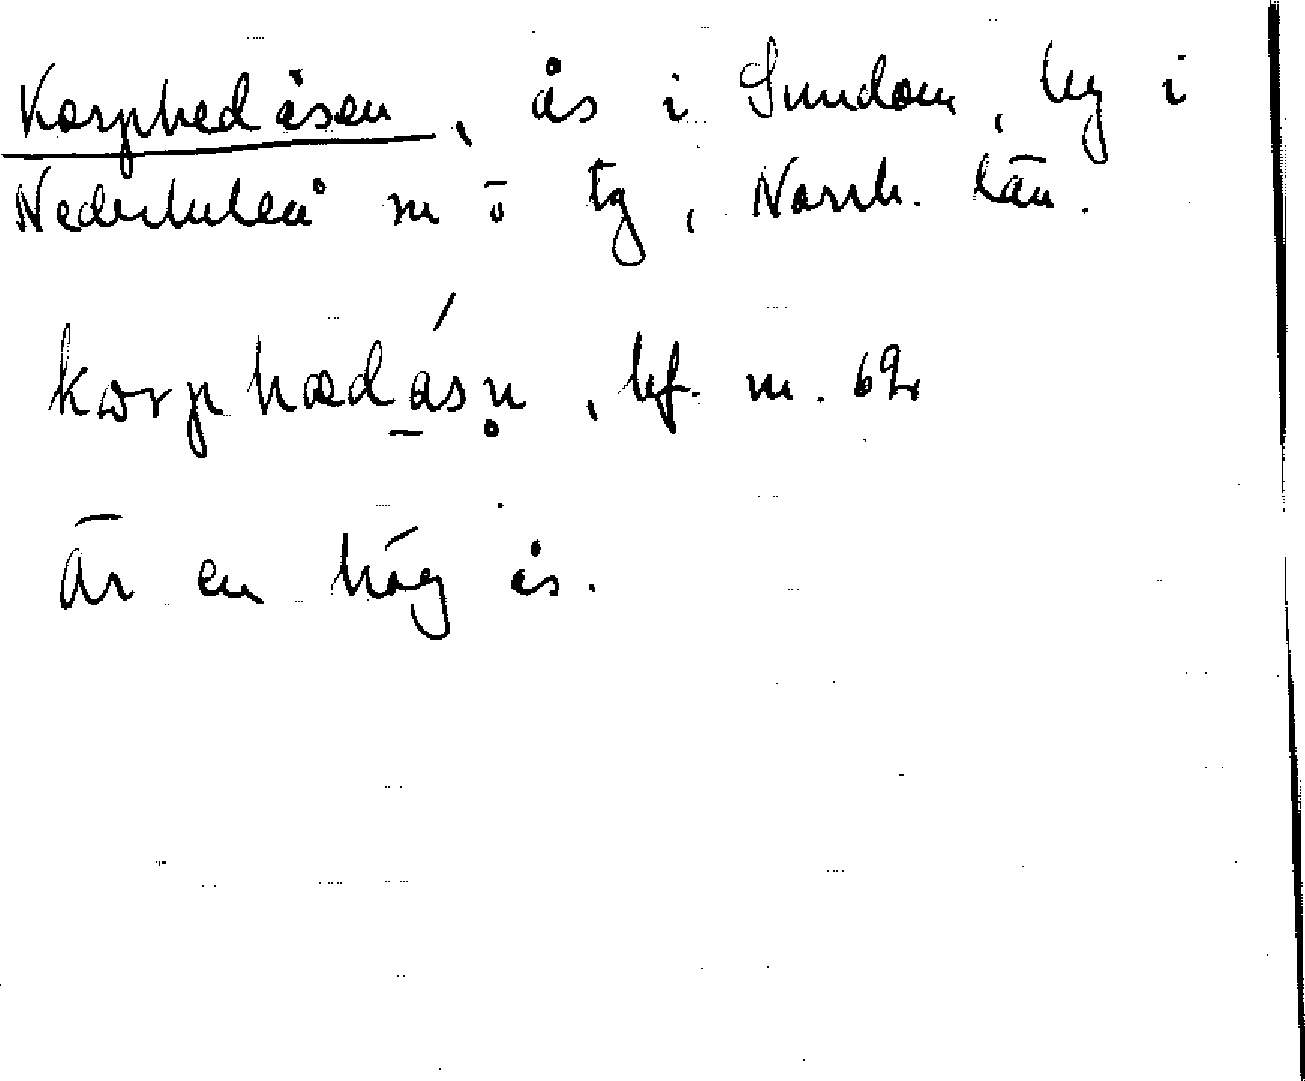 Korphedåsen, ås i Sundom, by i
Nederluleå m ö tg, Norrb. län.
korphædåsn̥, bf. m. 62
Är en hög ås.